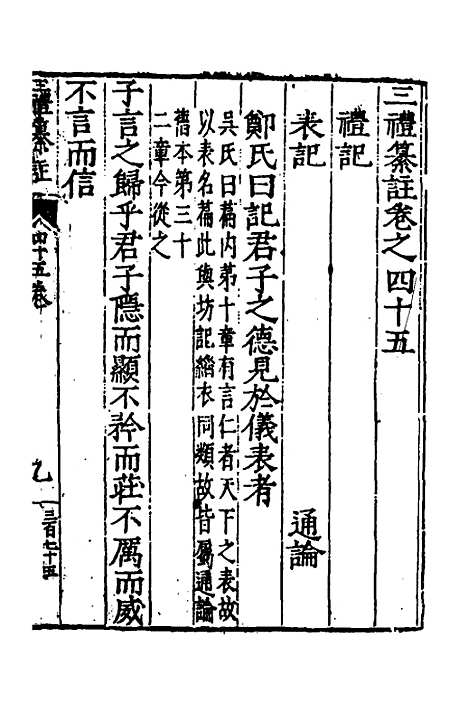 三禮纂註卷之四十五
禮記
表記　通論
鄭氏曰記君子之德見於儀表者
吳氏曰篇内第十章有言仁者天下之表故
以表名篇此與坊記緇衣同類故皆屬通論
舊本第三十
二章今從之
子言之歸乎君子隱而顯不矜而莊不厲而威
不言而信
三禮纂註
四十五卷
乙
三百七十五